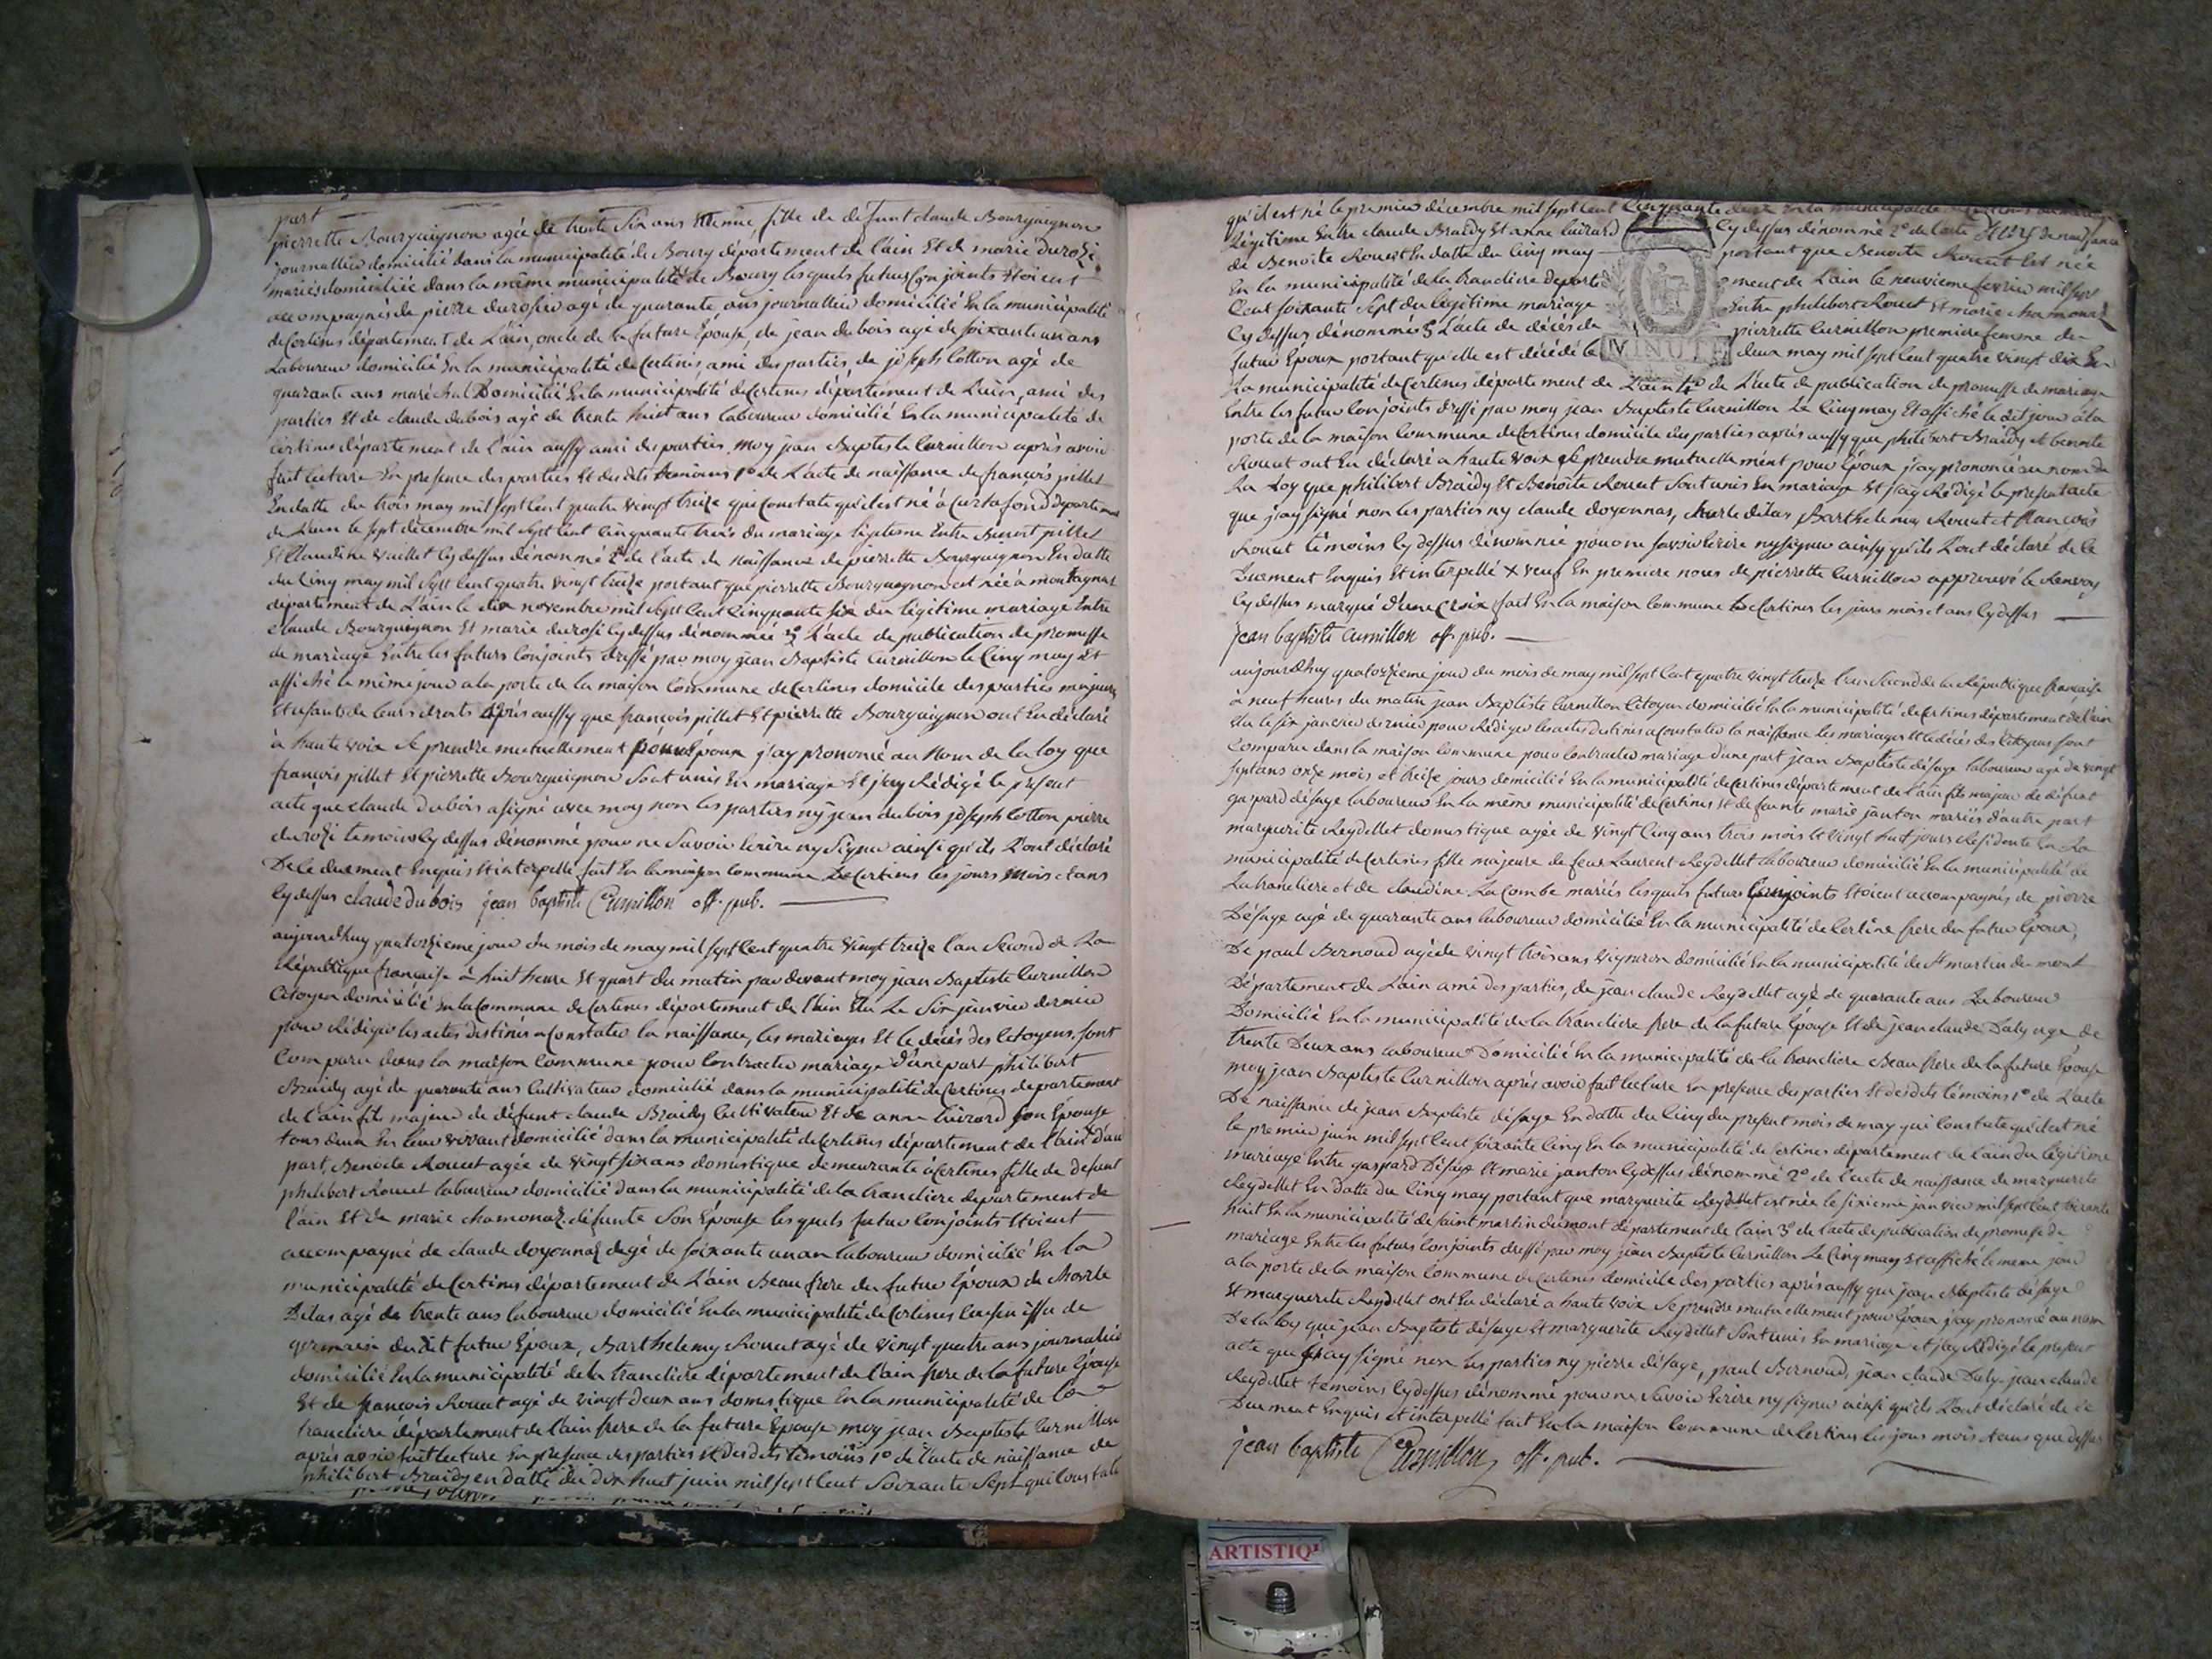 part
pierrette Bourguignon agée de trente six ans fille de defunt claude Bourguignon
journallier domicilié dans la municipalité de Boury département de l'ain Et de marie durosi
mariés domiciliée dans la même municipalité de Boury lesquels futurs Conjoints Etoient
accompagnés de pierre durosier agé de quarante ans journallier domicilié En la municipalité
de Certines département de L'ain, oncle de la future Epouse, de jean dubois agé de soixante un ans
Laboureur domicilié En la municipalité de Certines, ami des parties, de joseph Cotton agé de
quarante ans maréchal Domicilié En la municipalité de Certines département de L'ain, ami des
parties Et de claude dubois agé de trente huit ans laboureur domicilié En la municipalité de
Certines département de l'ain aussy ami des parties, moy jean Baptiste Curnillon après avoir
fait lecture En presence des parties Et desdits temoins 1° de L'acte de naissance de françois pillet
En datte du trois may mil sept Cent quatre vingt treize qui Constate qu'il est né à Curtafond departement
de L'ain le sept décembre mil sept Cent Cinquante trois du mariage légitime Entre Benoit pillet
Et Claudine vuillet Cy dessus dénommé 2° de l'acte de Naissance de pierrette Bourguignon En datte
du Cinq may mil sept Cent quatre vingt treize portant que pierrette Bourguignon est née à montagnat
département de L'ain le dix novembre mil sept Cent Cinquante six du légitime mariage Entre
claude Bourguignon Et marie durosi Cy dessus dénommé 3° L'acte de publication de promesse
de mariage Entre les futurs Conjoints dressé par moy jean Baptiste Curnillon le Cinq may Et
affiché le même jour a la porte de la maison Commune de Certines domicile des parties majeures
Et usants de leurs droits Après aussy que françois pillet Et pierrette Bourguignon ont Eu déclaré
à haute voix Se prendre mutuellement pour Epoux j'ay prononcé au Nom de la loy que
françois pillet Et pierrette Bourguignon Sont unis En mariage Et j'ay Rédigé le present
acte que claude dubois a signé avec moy non les parties ny jean dubois joseph Cotton pierre
durosi temoins Cy dessus dénommé pour ne Savoir Ecrire ny Signer ainsi qu'ils L'ont déclaré
De Ce duement Enquis Et interpellé fait En la maison Commune De Certines les jours Mois et ans
Cy dessus claude dubois jean baptiste Curnillon off. pub.
aujourdhuy quatorzieme jour du mois de may mil sept Cent quatre vingt treize l'an Second de La
République française à huit heure Et quart du matin par devant moy jean Baptiste Curnillon
Citoyen domicilié En la Commune de Certines département de l'ain Elu Le Six janvier dernier
pour Rédiger les actes destinés a Constater la naissance, les mariages Et le décès des Citoyens. Sont
Comparu dans la maison Commune pour Contracter mariage D'une part philibert
Braidy agé de quarante ans Cultivateur domicilié dans la municipalité de Certines departement
de l'ain fils majeur de défunt claude Braidy Cultivateur Et de anne son Epouse
tous deux En leur vivant domicilié dans la municipalité de Certines département de l'ain D'au
part, Benoite Rouet agée de vingt six ans domestique demeurante à Certines fille de defunt
philibert Rouet laboureur domicilié dans la municipalité de la tranclière departement de
l'ain Et de marie chamonaz défunte Son Epouse lesquels futur Conjoints Etoient
accompagné de claude doyonnaz agé de soixante un an laboureur domicilié En la
municipalité de Certines département de L'ain Beau frere du futur Epoux de Charle
Dilas agé de trente ans laboureur domicilié En la municipalité de Certines Cousin issu de
germain dudit futur Epoux, Barthelemy Rouet agé de vingt quatre ans journalier
domicilié En la municipalité de la tranclière département de l'ain frere de la future Epouse
Et de françois Rouet agé de vingt Deux ans domestique En la municipalité de la
tranclière département de l'ain frere de la future Epouse moy jean Baptiste Curnillon
après avoir fait lecture En presence des parties Et desdits témoins 1° de l'acte de naissance de
philibert Braidy en datte du dix huit juin mil sept Cent Soixante sept qui Constate
qu'il est né le premier décembre mil sept Cent Cinquante deux En la municipalité de Certines du mariage
Légitime Entre claude Braidy Et anne Cy dessus dénommé 2° de l'acte de naissance
de Benoite Rouet En datte du Cinq may portant que Benoite Rouet Est née
En la municipalité de la tranclière departement de L'ain le neuvieme fevrier mil sept
Cent soixante sept du légitime mariage Entre philibert Rouet Et marie chamonaz
Cy dessus dénommés 3° L'acte de décès de pierrette Curnillon premiere femme du
futur Epoux portant qu'elle est décédé le deux may mil sept Cent quatre vingt dix En
MINUTE
La municipalité de Certines département de L'ain 4° de L'acte de publication de promesse de mariage
Entre les futur Conjoints dressé par moy jean Baptiste Curnillon Le Cinq may Et affiché le dit jour à la
porte de la maison Commune de Certines domicile des parties après aussy que philibert Braidy et benoite
Rouet ont Eu déclaré a haute voix se prendre mutuellement pour Epoux j'ay prononcé au nom de
La Loy que philibert Braidy Et Benoite Rouet Sont unis En mariage Et j'ay Rédigé le present acte
que j'ay signé non les parties ny claude doyonnas, charle dilas Barthelemy Rouet et françois
Rouet témoins Cy dessus dénommé pour ne savoir Ecrire ny signer ainsy qu'ils L'ont déclaré de Ce
Duement Enquis Et interpellé X veuf En premiere noces de pierrette Curnillon approuvé le Renvoy
Cy dessus marqué d'une Croix fait En la maison Commune de Certines les jours mois et ans Cy dessus
jean baptiste Curnillon off. pub.
aujourdhuy quatorzieme jour du mois de may mil sept Cent quatre vingt treize l'an Second de la République française
à neuf heures du matin jean Baptiste Curnillon Citoyen domicilié En la municipalité de Certines département de l'ain
Elu le six janvier dernier pour Rédiger les actes destinés a Constater la naissance les mariages Et le décès des Citoyens sont
Comparu dans la maison Commune pour Contracter mariage d'une part jean Baptiste désage laboureur agé de vingt
sept ans onze mois et treize jours domicilié En la municipalité de Certines département de l'ain fils majeur de défunt
gaspard désage laboureur En la même municipalité de Certines Et de feunte marie janton mariés d'autre part
marguerite Reydellet domestique agée de vingt Cinq ans trois mois Et vingt huit jours Résidente En La
municipalité de Certines fille majeure de feux Laurent Reydellet laboureur domicilié En la municipalité de
La tranclière et de claudine La Combe mariés lesquels futurs Conjoints Etoient accompagnés de pierre
Désage agé de quarante ans laboureur domicilié En la municipalité de Certine frere du futur Epoux,
De paul Bernoud agé de vingt trois ans vigneron domicilié En la municipalité de St martin du mont
Département de L'ain ami des parties, de jean claude Reydellet agé de quarante ans Laboureur
Domicilié En la municipalité de la tranclière frere de la future Epouse Et de jean claude Daly agé de
trente Deux ans laboureur Domicilié En la municipalité de la tranclière Beau frere de la future Epouse
moy jean Baptiste Curnillon après avoir fait lecture En presence des parties Et desdits témoins 1° de L'acte
De naissance de jean Baptiste désage En datte du Cinq du present mois de may qui Constate qu'il est né
le premier juin mil sept Cent soixante Cinq En la municipalité de Certines département de l'ain du légitime
mariage Entre gaspard Désage Et marie janton Cy dessus dénommé 2° de l'acte de naissance de marguerite
Reydellet En datte du Cinq may portant que marguerite Reydellet est née le sixieme janvier mil sept Cent soixante
huit En la municipalité de saint martin du mont département de l'ain 3° de l'acte de publication de promesse de
mariage Entre les futurs Conjoints dressé par moy jean Baptiste Curnillon Le Cinq may Et affiché le meme jour
a la porte de la maison Commune de Certines domicile des parties après aussy que jean Baptiste désage
Et marguerite Reydellet ont Eu déclaré a haute voix Se prendre mutuellement pour Epoux j'ay prononcé au nom
De la loy que jean Baptiste désage Et marguerite Reydellet Sont unis En mariage et j'ay Rédigé le present
acte que j'ay signé non les parties ny pierre désage, paul Bernoud, jean claude Daly jean claude
Reydellet temoins Cy dessus dénommé pour ne Savoir Ecrire ny signer ainsi qu'ils L'ont déclaré de Ce
Duement Enquis et interpellé fait En la maison Commune de Certines les jours mois et ans que dessus
jean baptiste Curnillon off. pub.
ARTISTIQ